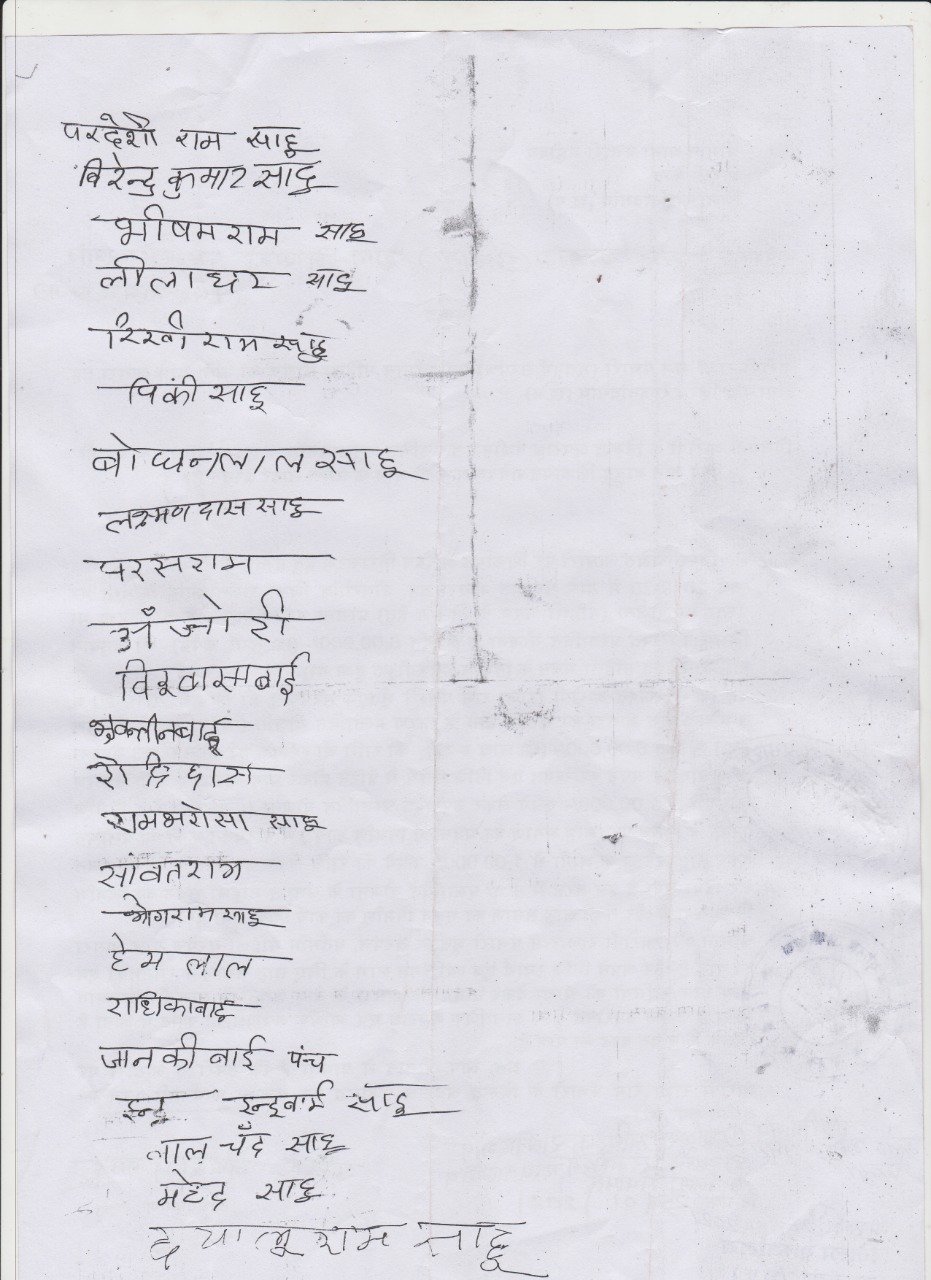 परदेशी राम साहू
विरेन्द्र कुमार साहु
भीषमराम साहू
लीलाधर साहू
रिखी राम साहु
पिंकी साहू
बोधनलाल साहू
लक्ष्मण दास साहू
परसराम
अँजोरी
विश्वासाबाई
भुक्तीनबाई
रामभरोसा साहू
सांवतराम
भोगराम साहू
हेम लाल
राधिकाबाई
जानकी बाई पंच
इन्दू साहू
लाल चँद साहू
महेंद्र साहू
दयालू राम साहू